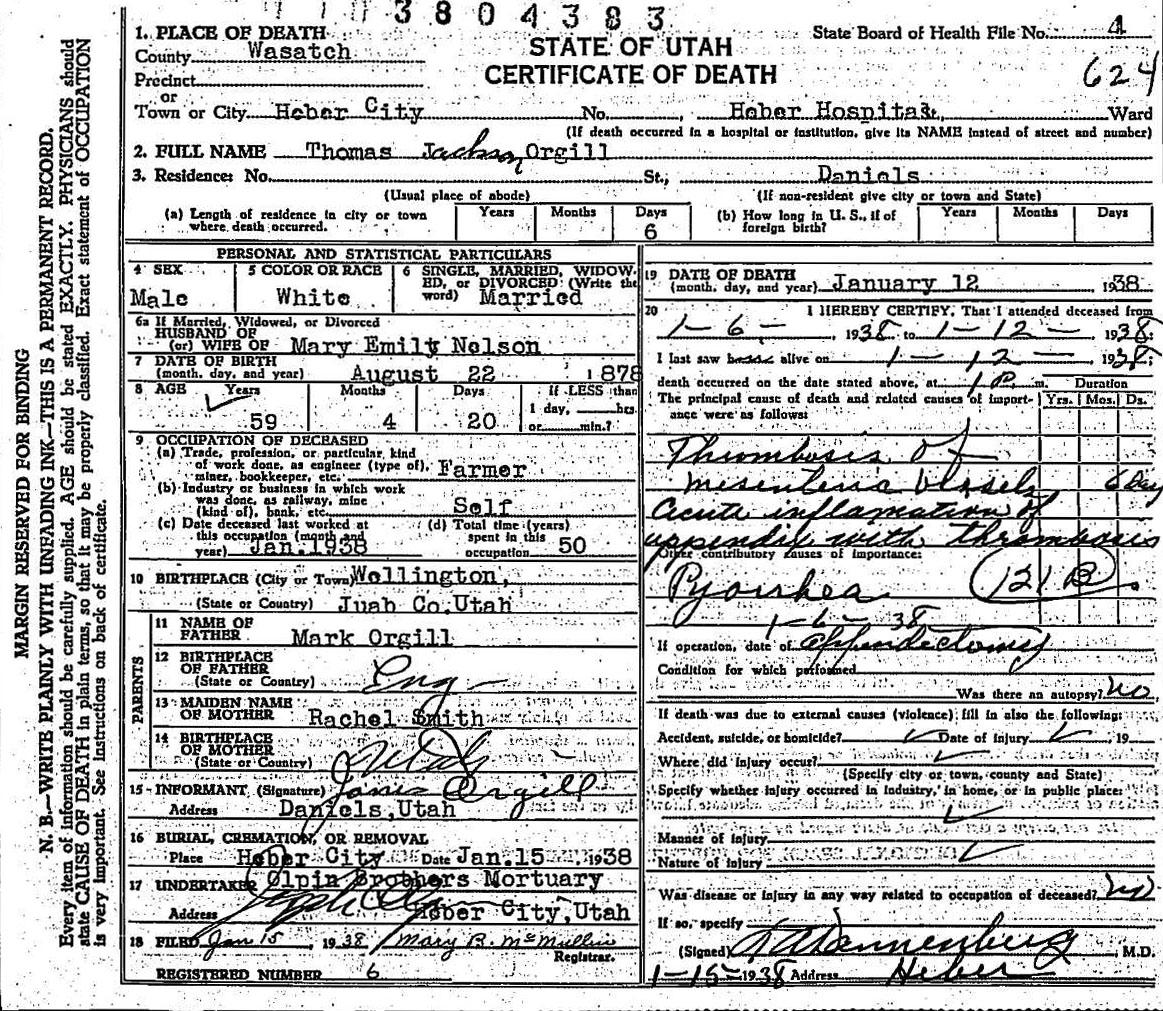 3804383
1. PLACE OF DEATH
State Board of Health File No. 4
County Wasatch
STATE OF UTAH
CERTIFICATE OF DEATH
624
Precinct
or
Town or City Heber City No. , Heber Hospital St., Ward
(If death occurred in a hospital or institution, give its NAME instead of street and number)
2. FULL NAME Thomas Jackson Orgill
3. Residence: No. St., Daniels
(Usual place of abode) (If non-resident give city or town and State)
(a) Length of residence in city or town where death occurred. Years Months Days 6
(b) How long in U. S., if of foreign birth? Years Months Days
PERSONAL AND STATISTICAL PARTICULARS
4 SEX Male
5 COLOR OR RACE White
6 SINGLE, MARRIED, WIDOWED, or DIVORCED: (Write the word) Married
6a If Married, Widowed, or Divorced
HUSBAND OF
(or) WIFE OF Mary Emily Nelson
7 DATE OF BIRTH
(month, day, and year) August 22 1878
8 AGE Years Months Days If LESS than
59 4 20 1 day, hrs.
or min.?
9 OCCUPATION OF DECEASED
(a) Trade, profession, or particular, kind
of work done, as engineer (type of), Farmer
miner, bookkeeper, etc.
(b) Industry or business in which work
was done, as railway, mine Self
(kind of), bank, etc.
(c) Date deceased last worked at
this occupation (month and
year) Jan. 1938
(d) Total time (years)
spent in this
occupation 50
10 BIRTHPLACE (City or Town) Wellington,
(State or Country) Juab Co, Utah
PARENTS
11 NAME OF
FATHER Mark Orgill
12 BIRTHPLACE
OF FATHER
(State or Country) Eng
13 MAIDEN NAME
OF MOTHER Rachel Smith
14 BIRTHPLACE
OF MOTHER
(State or Country) Utah
15 INFORMANT (Signature) Orgill
Address Daniels, Utah
16 BURIAL, CREMATION, OR REMOVAL
Place Heber City Date Jan. 15 1938
17 UNDERTAKER Olpin Brothers Mortuary
Address Heber City, Utah
18 FILED Jan 15, 1938 Mary B. McMullin
Registrar.
REGISTERED NUMBER 6
19 DATE OF DEATH
(month, day, and year) January 12, 1938
20 I HEREBY CERTIFY, That I attended deceased from
1-6-1938 to 1-12-1938
I last saw alive on 1-12-1938;
death occurred on the date stated above, at 1 P. m. Duration
The principal cause of death and related causes of importance were as follows: Yrs. Mos. Ds.
Thrombosis of
mesenteric vessels 6 day
Acute inflamation of
appendix with thrombosis
Other contributory causes of importance:
Pyorrhea 121 B
1-6-38
If operation, date of appendectomy
Condition for which performed
Was there an autopsy? No
If death was due to external causes (violence) fill in also the following:
Accident, suicide, or homicide? Date of injury , 19
Where did injury occur?
(Specify city or town, county and State)
Specify whether injury occurred in industry, in home, or in public place:
Manner of injury
Nature of injury
Was disease or injury in any way related to occupation of deceased? No
If so, specify
(Signed) Dannenberg, M.D.
1-15-1938 Address Heber
MARGIN RESERVED FOR BINDING
N. B.—WRITE PLAINLY WITH UNFADING INK—THIS IS A PERMANENT RECORD.
Every item of information should be carefully supplied. AGE should be stated EXACTLY. PHYSICIANS should
state CAUSE OF DEATH in plain terms, so that it may be properly classified. Exact statement of OCCUPATION
is very important. See instructions on back of certificate.